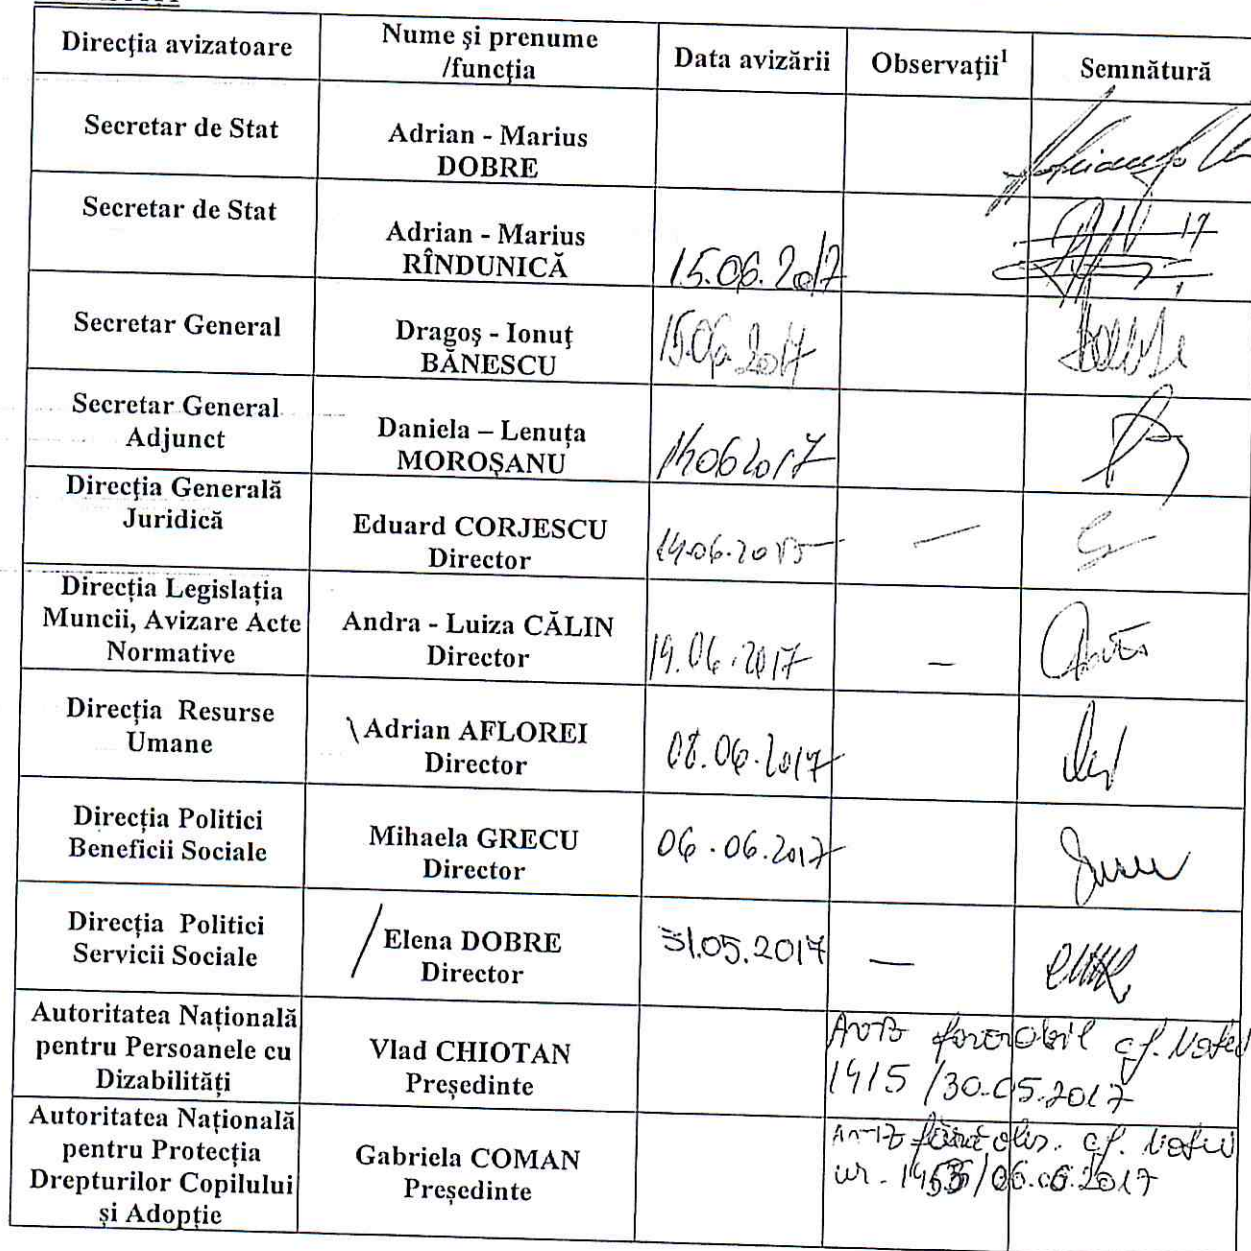 Direcția avizatoare
Nume și prenume
/funcția
Data avizării
Observații¹
Semnătură
Secretar de Stat
Adrian - Marius
DOBRE
Secretar de Stat
Adrian - Marius
RÎNDUNICĂ
15.06.2017
17
Secretar General
Dragoș - Ionuț
BĂNESCU
15.06.2017
Secretar General
Adjunct
Daniela – Lenuța
MOROȘANU
14.06.2017
Direcția Generală
Juridică
Eduard CORJESCU
Director
14.06.2017
—
Direcția Legislația
Muncii, Avizare Acte
Normative
Andra - Luiza CĂLIN
Director
14.06.2017
—
Direcția Resurse
Umane
\ Adrian AFLOREI
Director
08.06.2017
Direcția Politici
Beneficii Sociale
Mihaela GRECU
Director
06.06.2017
Direcția Politici
Servicii Sociale
/ Elena DOBRE
Director
31.05.2017
—
Autoritatea Națională
pentru Persoanele cu
Dizabilități
Vlad CHIOTAN
Președinte
Aviz favorabil cf. Notei
1415 /30.05.2017
Autoritatea Națională
pentru Protecția
Drepturilor Copilului
și Adopție
Gabriela COMAN
Președinte
Aviz cf. Notei
nr. /06.06.2017